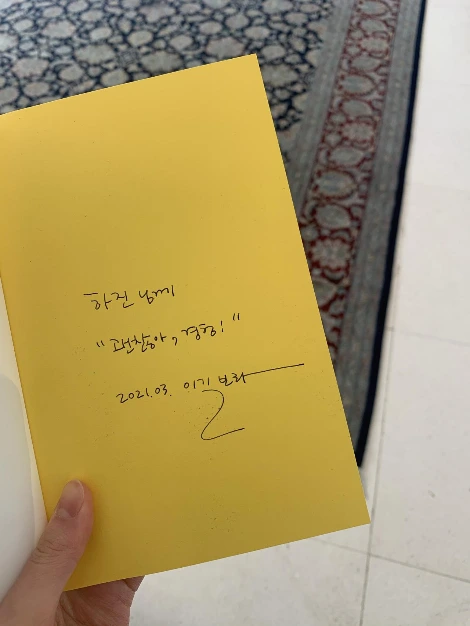 하진 님께
"괜찮아, 경험!"
2021.03. 이길보라